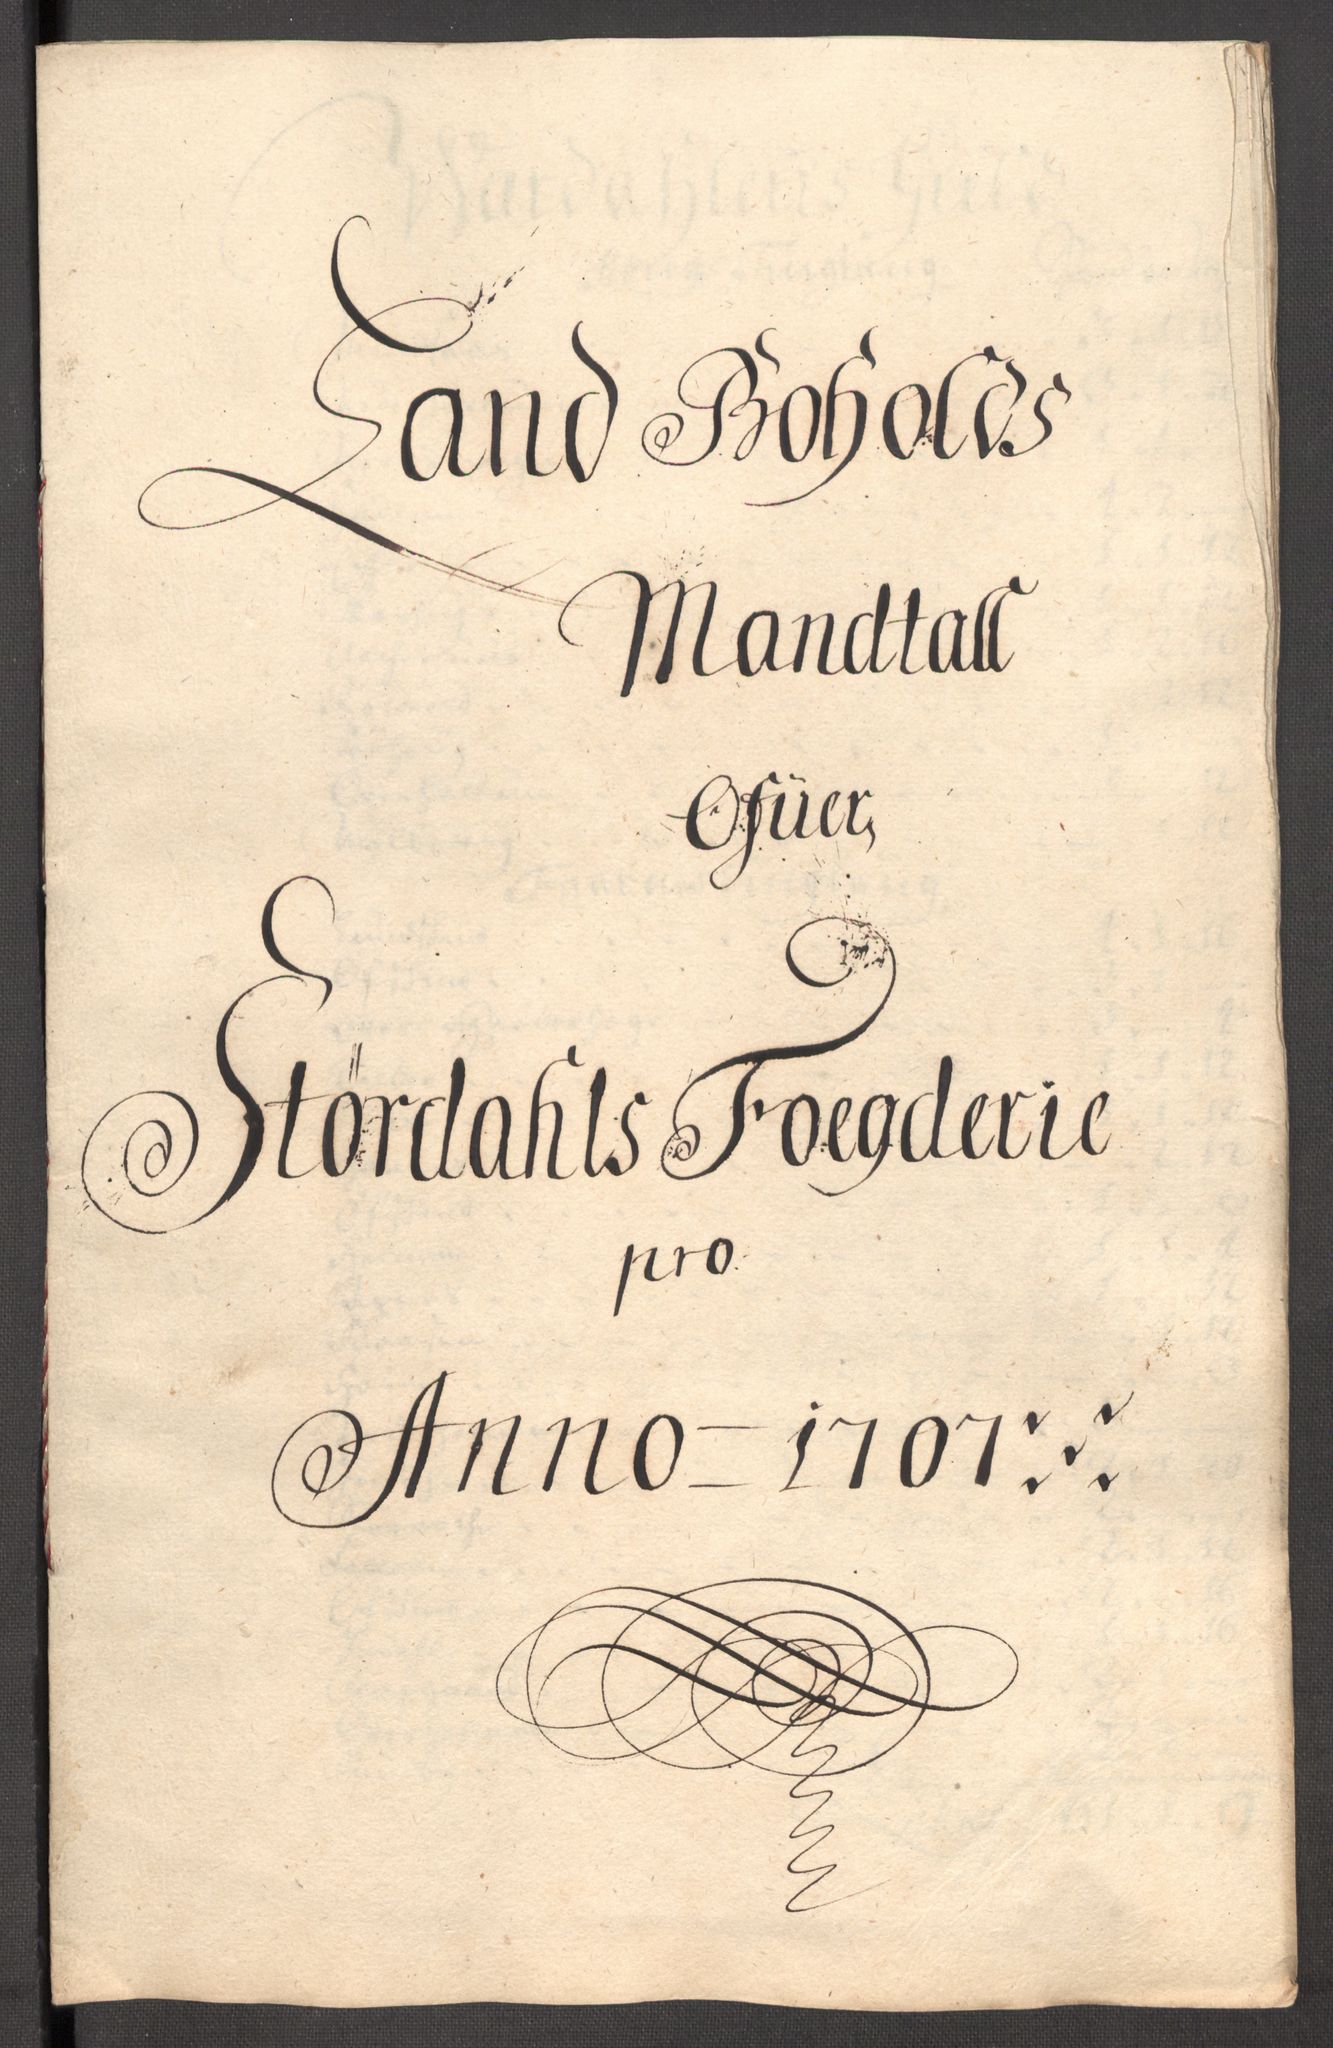 Land Boholds
Mandtall
Ofüer,
Størdahls Foegderie
pro
Anno - 1707